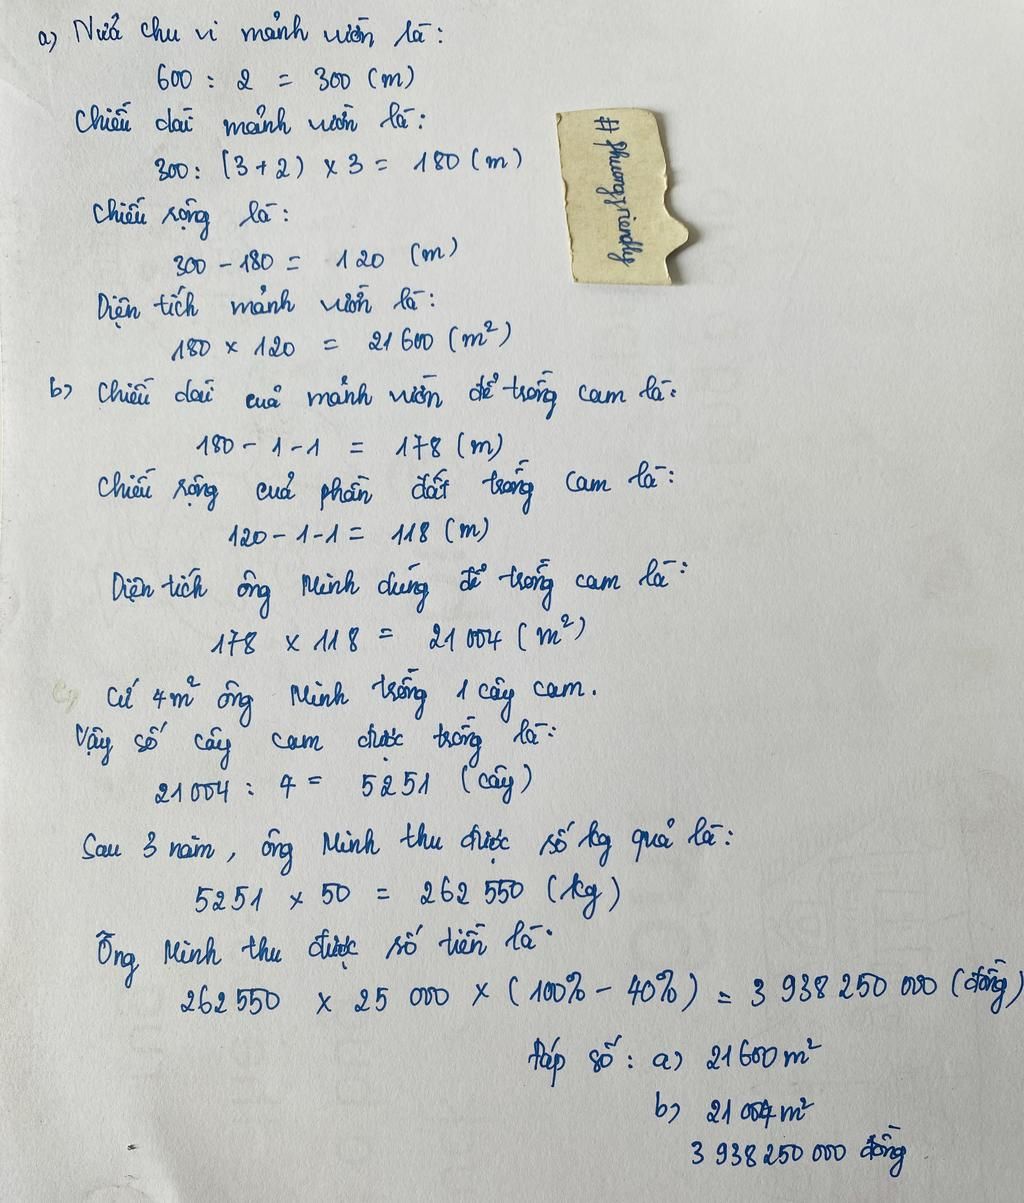 a) Nửa chu vi mảnh vườn là:
600 : 2 = 300 (m)
Chiều dài mảnh vườn là:
300 : (3 + 2) × 3 = 180 (m)
Chiều rộng là:
300 - 180 = 120 (m)
Diện tích mảnh vườn là:
180 × 120 = 21 600 (m²)
b) Chiều dài của mảnh vườn để trồng cam là:
180 - 1 - 1 = 178 (m)
Chiều rộng của phần đất trồng cam là:
120 - 1 - 1 = 118 (m)
Diện tích ông Minh dùng để trồng cam là:
178 × 118 = 21 004 (m²)
Cứ 4m² ông Minh trồng 1 cây cam.
Vậy số cây cam được trồng là:
21 004 : 4 = 5251 (cây)
Sau 3 năm, ông Minh thu được số kg quả là:
5251 × 50 = 262 550 (kg)
Ông Minh thu được số tiền là:
262 550 × 25 000 × (100% - 40%) = 3 938 250 000 (đồng)
Đáp số: a) 21 600 m²
b) 21 004 m²
3 938 250 000 đồng